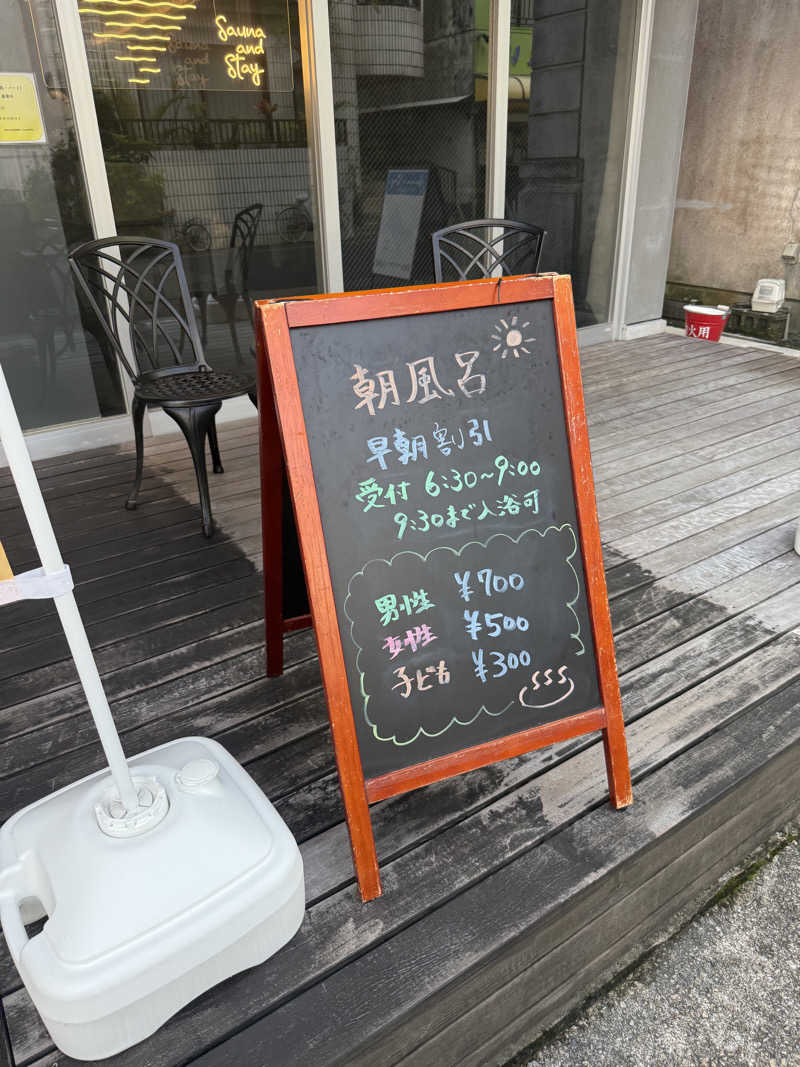 Sauna
and
Stay
朝風呂
早朝割引
受付 6:30~9:00
9:30まで入浴可
男性 ¥700
女性 ¥500
子ども ¥300
火用